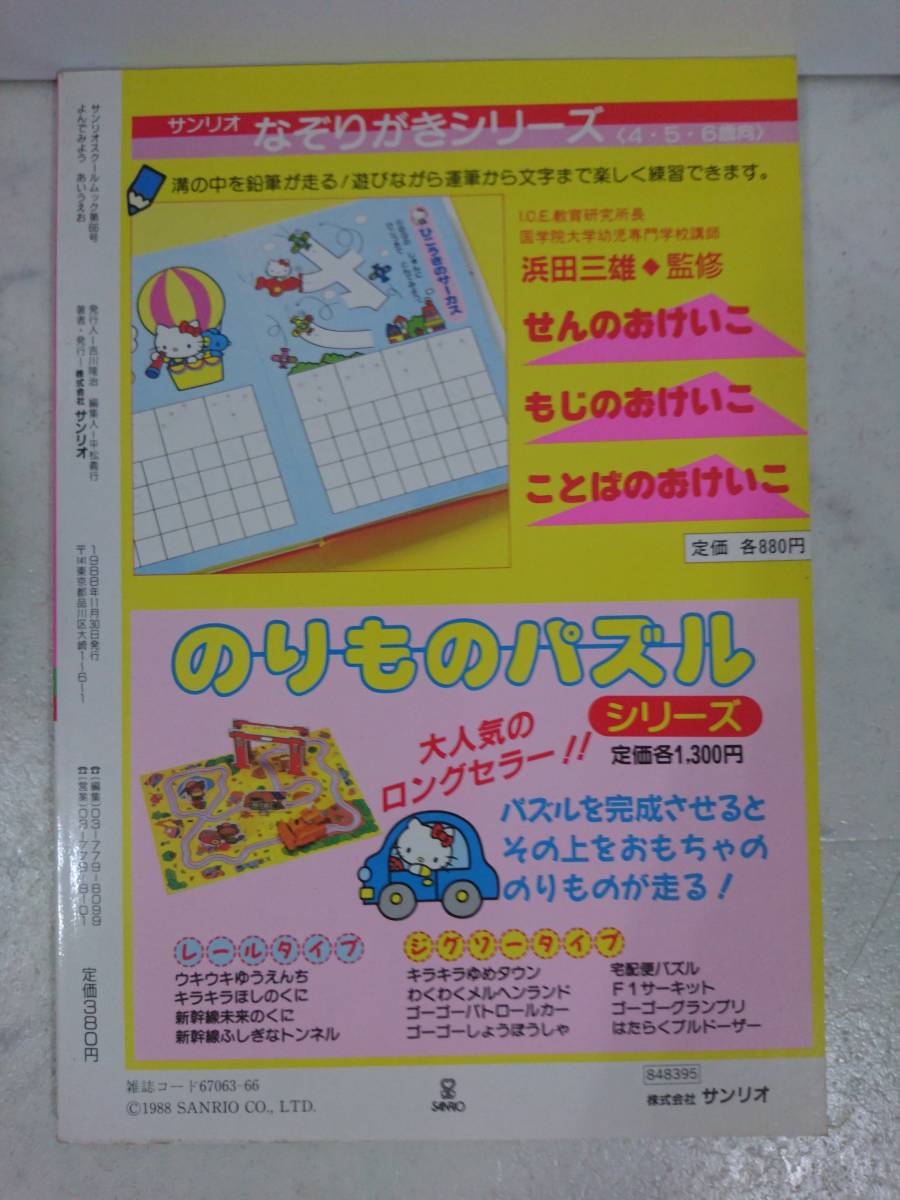 サンリオ なぞりがきシリーズ 〈4・5・6歳向〉
溝の中を鉛筆が走る!遊びながら運筆から文字まで楽しく練習できます。
I.C.E.教育研究所長
国学院大学幼児専門学校講師
浜田三雄◆監修
せんのおけいこ
もじのおけいこ
ことばのおけいこ
定価 各880円
ひこうきのサーカス
のりものパズル
シリーズ
定価各1,300円
大人気の
ロングセラー!!
パズルを完成させると
その上をおもちゃの
のりものが走る!
レールタイプ
ウキウキゆうえんち
キラキラほしのくに
新幹線未来のくに
新幹線ふしぎなトンネル
ジグソータイプ
キラキラゆめタウン
わくわくメルヘンランド
ゴーゴーパトロールカー
ゴーゴーしょうぼうしゃ
宅配便パズル
F1サーキット
ゴーゴーグランプリ
はたらくブルドーザー
雑誌コード67063-66
©1988 SANRIO CO., LTD.
SANRIO
848395
株式会社 サンリオ
サンリオスクールムック第66号
よんでみよう あいうえお
発行人―吉川隆治 編集人―平松義行
著者・発行―株式会社 サンリオ
1988年11月30日発行
〒141東京都品川区大崎1-6-1
☎(編集)03-779-8099
☎(営業)03-779-8101
定価380円